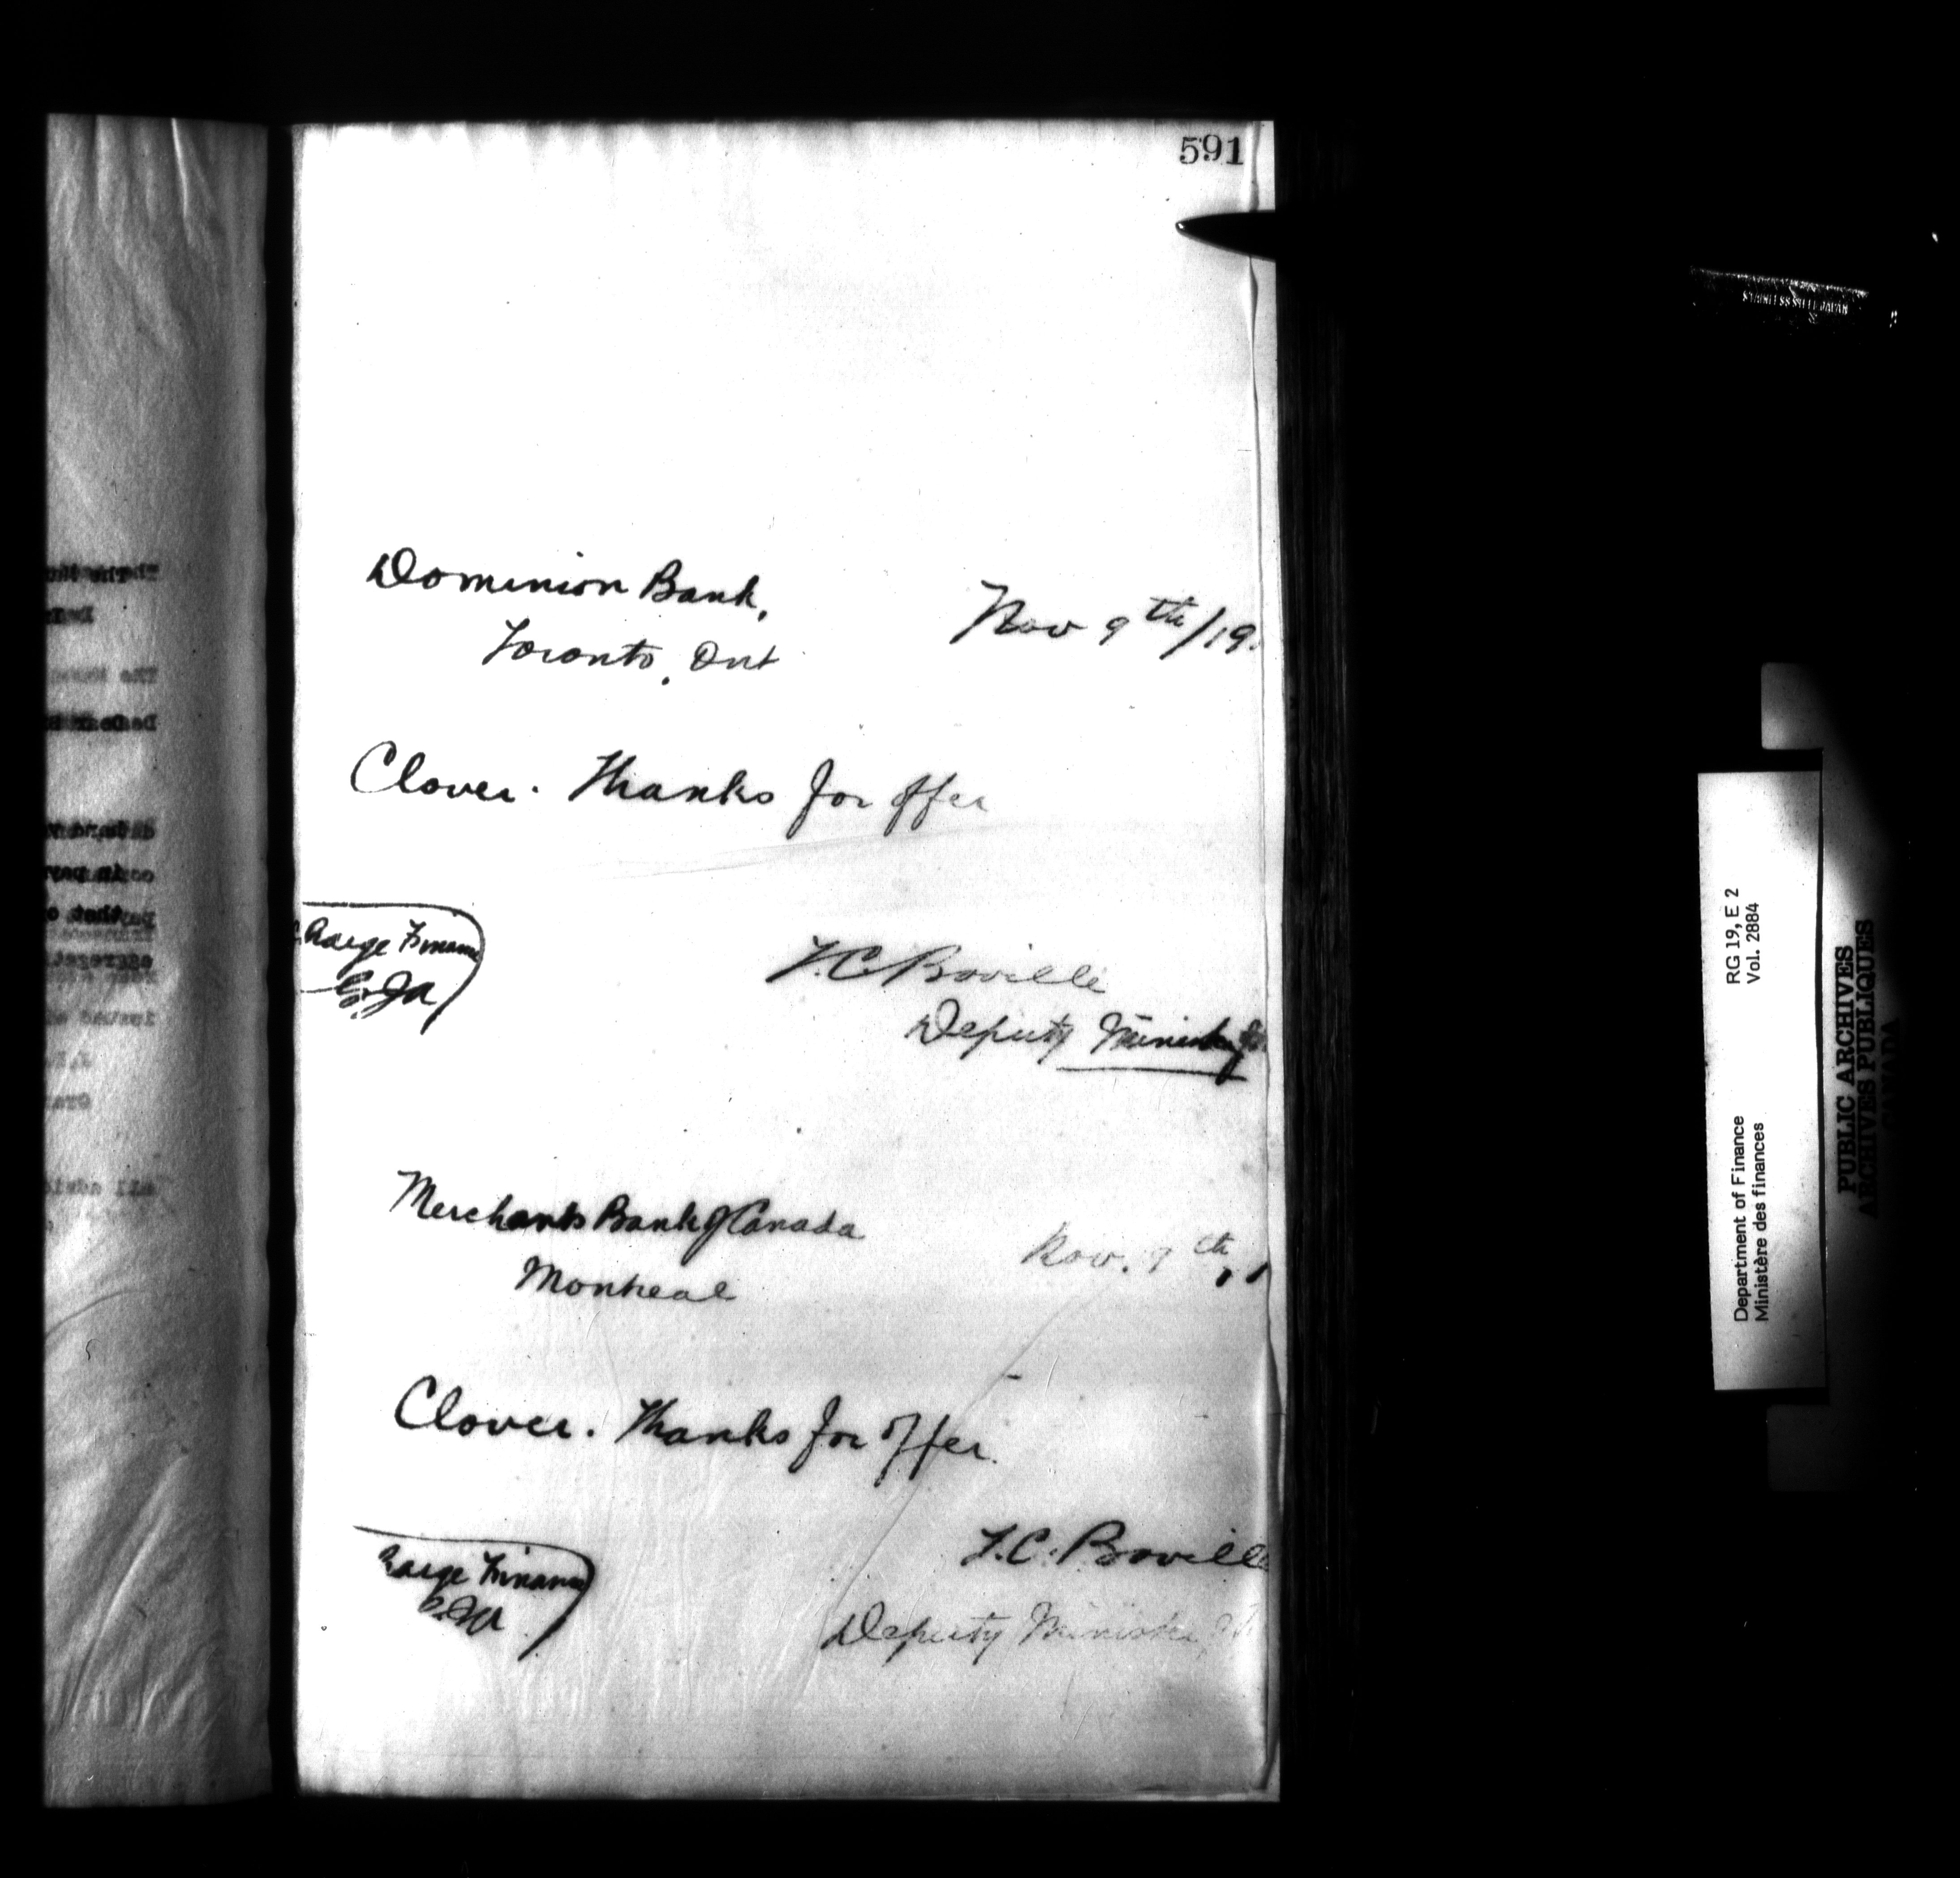 591
Dominion Bank,
Toronto, Ont
Nov 9th/19.
Clover. Thanks for offer
Charge Finance
T.C. Boville
Deputy Minister
Merchants Bank of Canada
Montreal
Nov. 9th,
Clover. Thanks for offer.
Charge Finance
T.C. Boville
Deputy Minister
RG 19, E 2
Vol. 2884
Department of Finance
Ministère des finances
PUBLIC ARCHIVES
ARCHIVES PUBLIQUES
CANADA